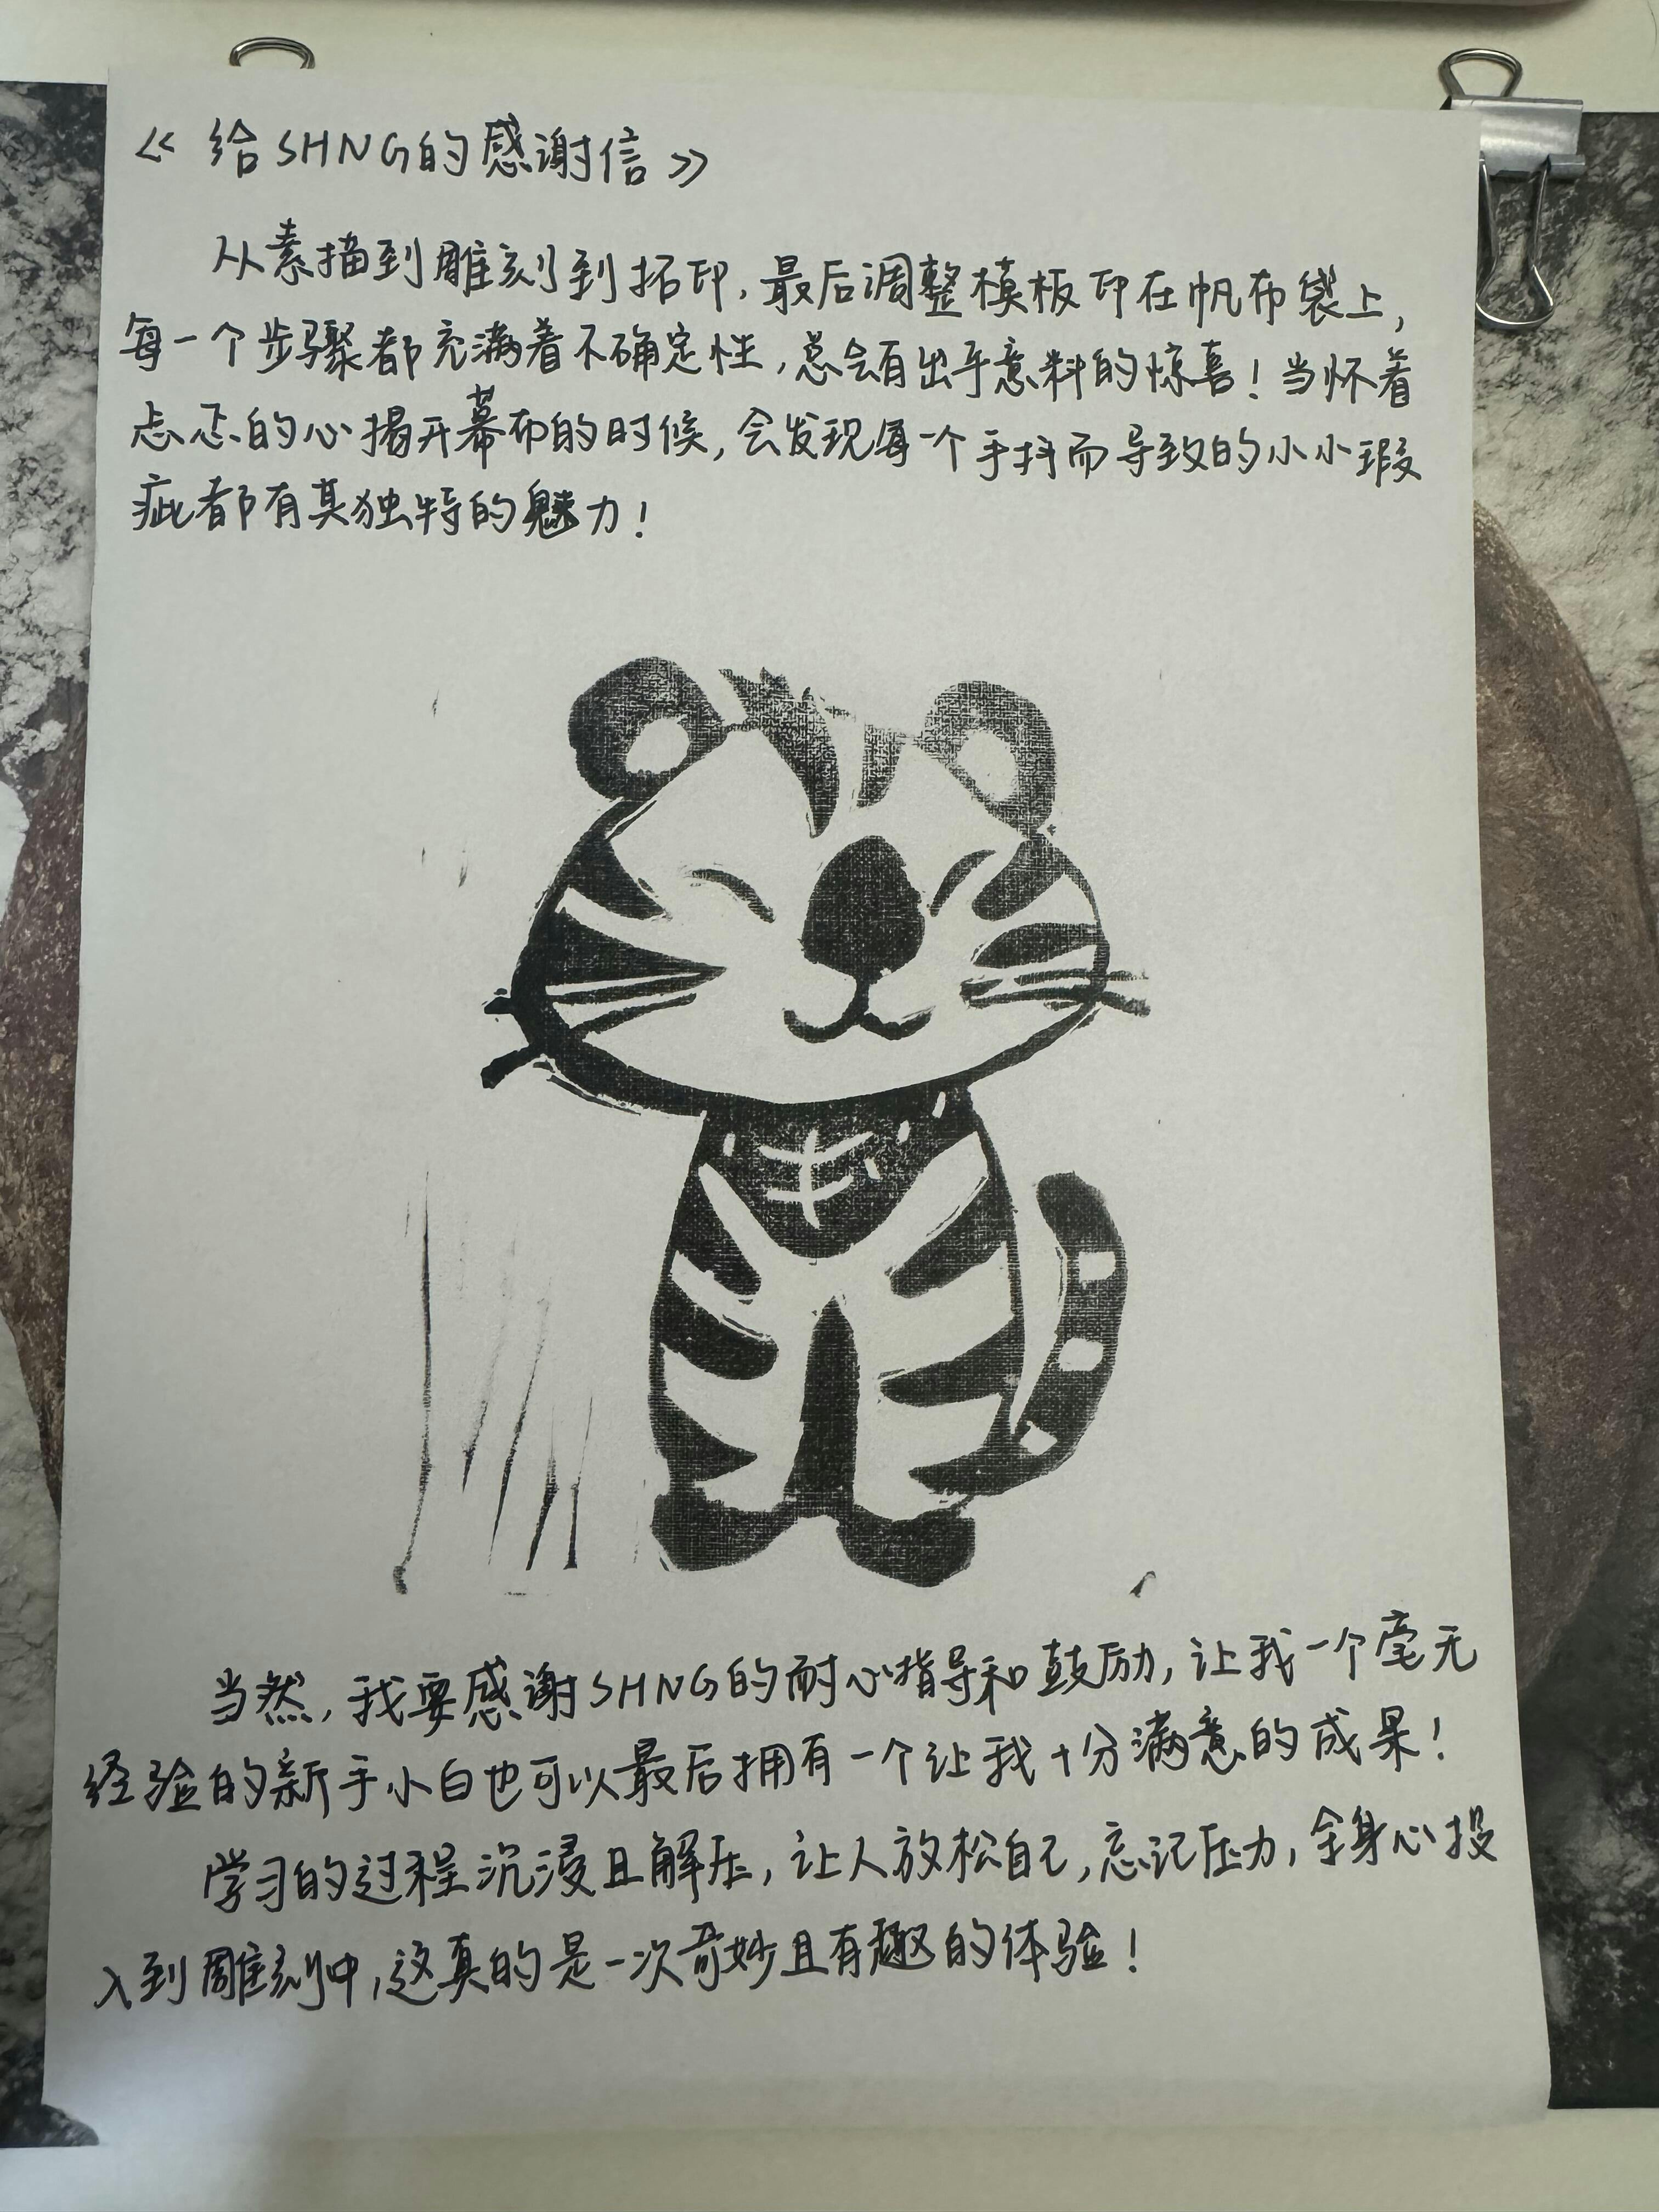 《给SHNG的感谢信》
从素描到雕刻到拓印，最后调整模板印在帆布袋上，
每一个步骤都充满着不确定性，总会有出乎意料的惊喜！当怀着
忐忑的心揭开幕布的时候，会发现每一个手抖而导致的小小瑕
疵都有其独特的魅力！
当然，我要感谢SHNG的耐心指导和鼓励，让我一个毫无
经验的新手小白也可以最后拥有一个让我十分满意的成果！
学习的过程沉浸且解压，让人放松自己，忘记压力，全身心投
入到雕刻中，这真的是一次奇妙且有趣的体验！